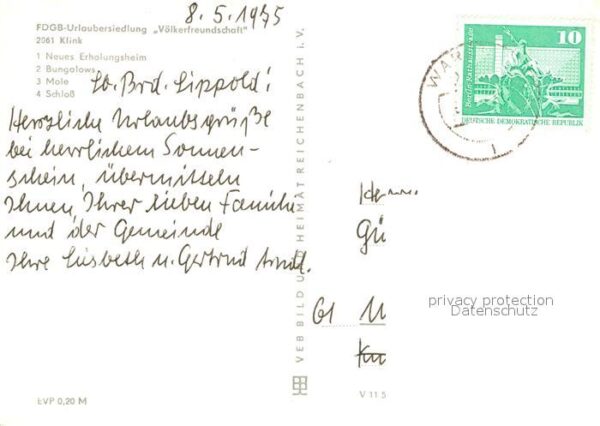 8.5.1975
FDGB-Urlaubersiedlung „Völkerfreundschaft"
2061 Klink
1 Neues Erholungsheim
2 Bungalows
3 Mole
4 Schloß
Lb. Brd. Lippold!
Herzliche Urlaubsgrüße
bei herrlichem Sonnen-
schein, übermitteln
Ihnen, Ihrer lieben Familie
und der Gemeinde
Ihre Lisbeth u. Gertrud
VEB BILD UND HEIMAT REICHENBACH I. V.
WAR
10
Berlin Rathausstraße
DEUTSCHE DEMOKRATISCHE REPUBLIK
Gü
61
privacy protection
Datenschutz
EVP 0,20 M
V 11 5